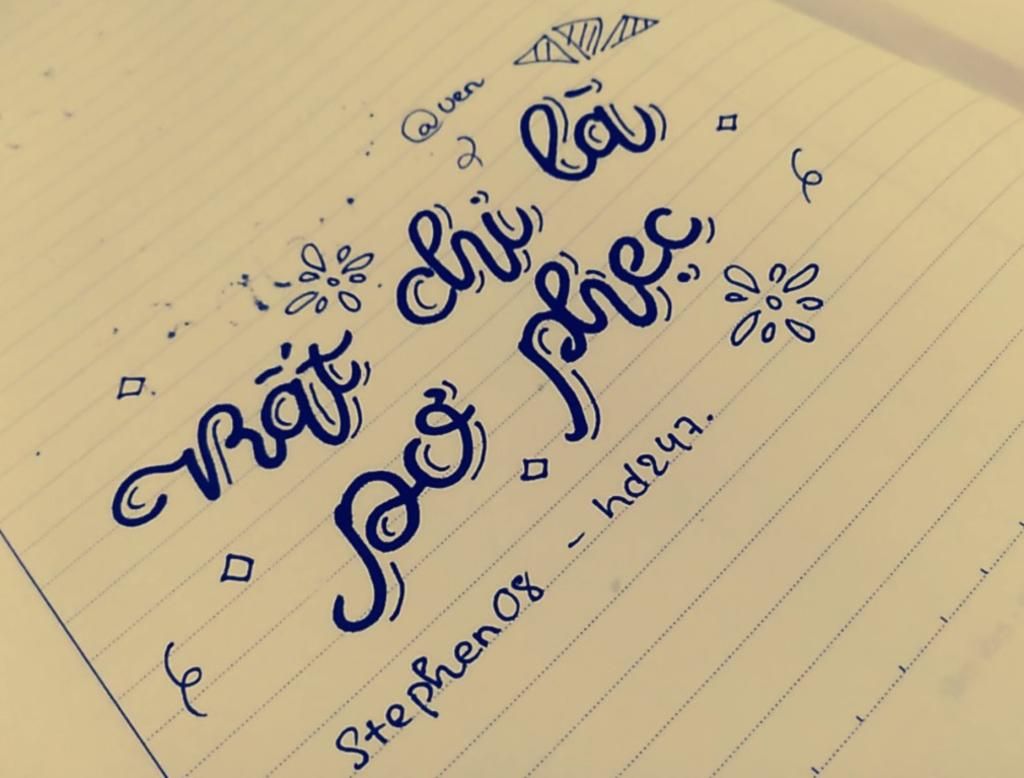 @ven
2
Rất chi là
pơ phẹc
Stephen08 - hd247.